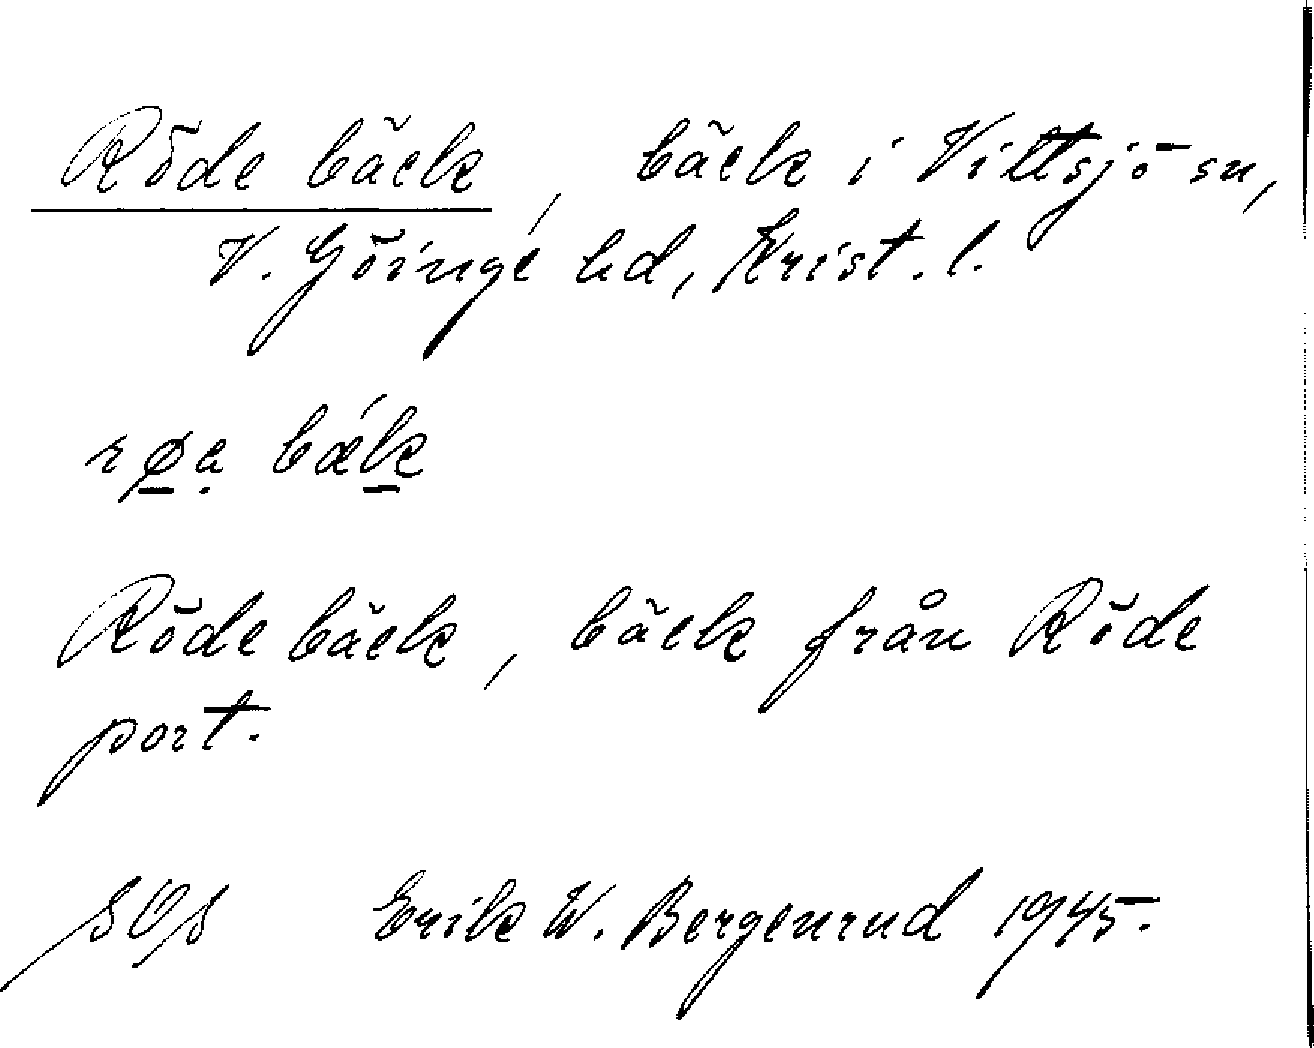 Röde bäck, bäck i Vittsjö sn,
V. Göinge hd, Krist. l.
røa bæ´k
Röde bäck, bäck från Röde
port.
SOS Erik W. Bergenrud 1945.